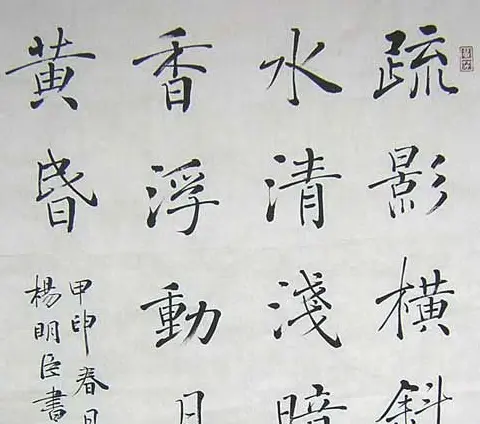 疏影橫斜
水清淺暗
香浮動月
黃昏
甲申春月
楊明臣書